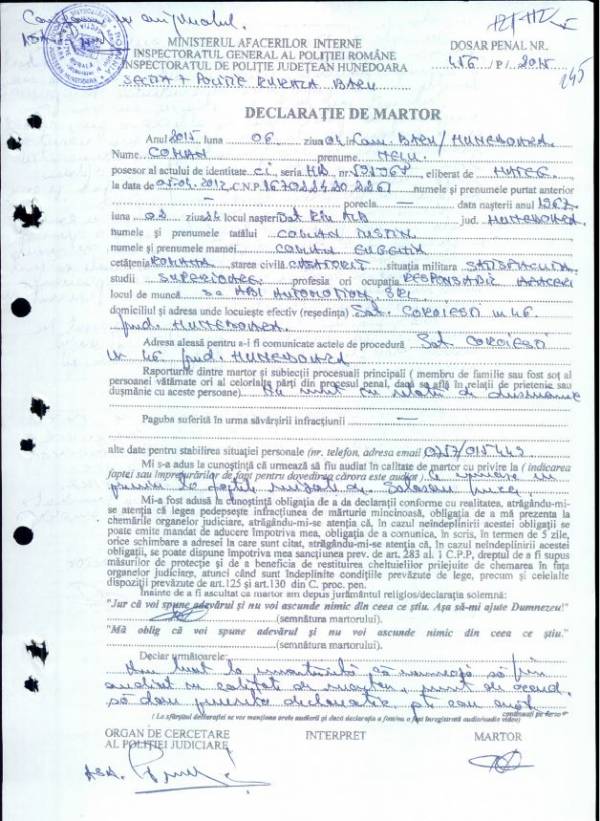 Conform cu originalul.
MINISTERUL AFACERILOR INTERNE
INSPECTORATUL GENERAL AL POLIŢIEI ROMÂNE
INSPECTORATUL DE POLIŢIE JUDEŢEAN HUNEDOARA
SECŢIA 7 POLIŢIE RURALĂ BARU
DOSAR PENAL NR.
456 /P/ 2015
245
DECLARAŢIE DE MARTOR
Anul 2015 luna 06 ziua 04 în Com. BARU/HUNEDOARA
Nume COMAN prenume NELU
posesor al actului de identitate C.I., seria HD nr. eliberat de HAŢEG
la data de 2012 C.N.P. numele şi prenumele purtat anterior
— porecla — data naşterii anul 1967
luna 02 ziua 24 locul naşterii Sat Rîu ALB jud. HUNEDOARA
numele şi prenumele tatălui COMAN IUSTIN
numele şi prenumele mamei COMAN EUGENIA
cetăţenia ROMANA starea civilă CASATORIT situaţia militara SATISFACUTA
studii SUPERIOARE profesia ori ocupaţia RESPONSABIL AFACERI
locul de muncă SC ABI AUTOMOTION SRL
domiciliul şi adresa unde locuieşte efectiv (reşedinţa) Sat. COROIESTI nr 46
jud. HUNEDOARA
Adresa aleasă pentru a-i fi comunicate actele de procedură Sat. COROIESTI
nr 46 jud. HUNEDOARA
Raporturile dintre martor şi subiecţii procesuali principali ( membru de familie sau fost soţ al
persoanei vătămate ori al celorlalte părţi din procesul penal, dacă se află în relaţii de prietenie sau
duşmănie cu aceste persoane) Nu sunt cu relatii de dusmanie
Paguba suferită în urma săvârşirii infracţiunii —
alte date pentru stabilirea situaţiei personale (nr. telefon, adresa email 0757/015443
Mi s-a adus la cunoştinţă că urmează să fiu audiat în calitate de martor cu privire la ( indicarea
faptei sau împrejurărilor de fapt pentru dovedirea cărora este audiat)
la faptele de
Mi-a fost adusă la cunoştinţă obligaţia de a da declaraţii conform cu realitatea, atrăgându-mi-
se atenţia că legea pedepseşte infracţiunea de mărturie mincinoasă, obligaţia de a mă prezenta la
chemările organelor judiciare, atrăgându-mi-se atenţia că, în cazul neîndeplinirii acestei obligaţii se
poate emite mandat de aducere împotriva mea, obligaţia de a comunica, în scris, în termen de 5 zile,
orice schimbare a adresei la care sunt citat, atrăgându-mi-se atenţia că, în cazul neîndeplinirii acestei
obligaţii, se poate dispune împotriva mea sancţiunea prev. de art. 283 al. 1 C.P.P, dreptul de a fi supus
măsurilor de protecţie şi de a beneficia de restituirea cheltuielilor prilejuite de chemarea în faţa
organelor judiciare, atunci când sunt îndeplinite condiţiile prevăzute de lege, precum şi celelalte
dispoziţii prevăzute de art.125 şi art.130 din C. proc. pen.
Înainte de a fi ascultat ca martor am depus jurământul religios/declaraţia solemnă:
"Jur că voi spune adevărul şi nu voi ascunde nimic din ceea ce ştiu. Aşa să-mi ajute Dumnezeu!"
(semnătura martorului).
"Mă oblig că voi spune adevărul şi nu voi ascunde nimic din ceea ce ştiu."
(semnătura martorului).
Declar următoarele:
Am luat la cunostinta că urmează să fiu
audiat in calitate de martor, sunt de acord
să dau prezenta declaratie
continuări pe verso
( La sfârşitul declaraţiei se va menţiona orele audierii şi dacă declaraţia a fost/nu a fost înregistrată audio/audio video)
ORGAN DE CERCETARE
AL POLIŢIEI JUDICIARE
INTERPRET
MARTOR
ASA.